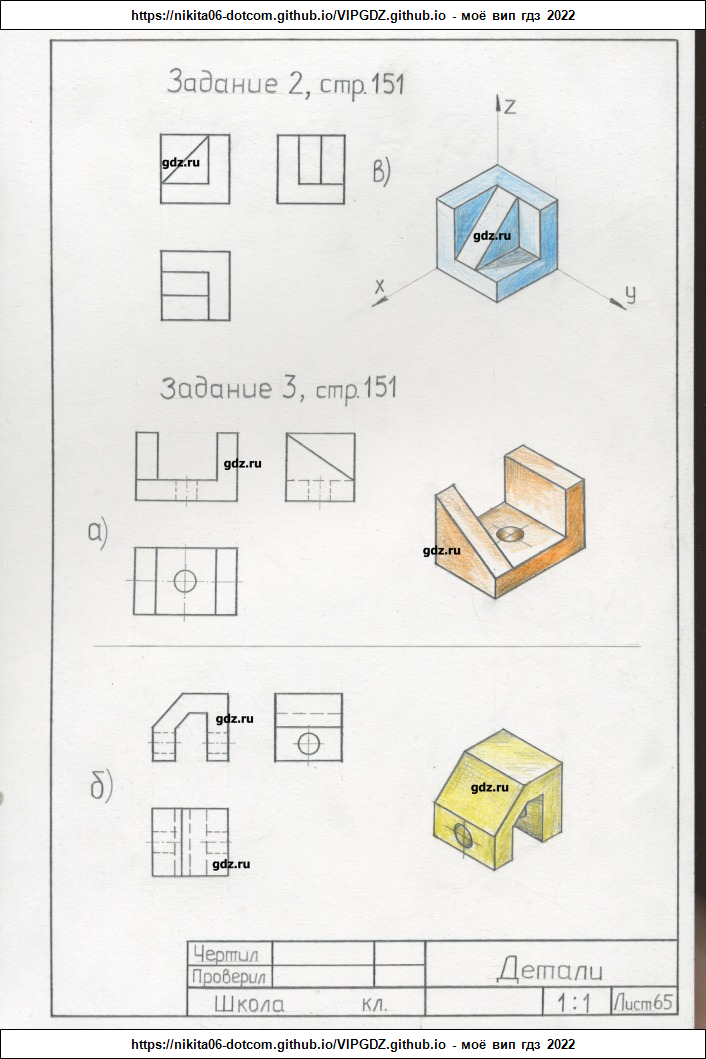 https://nikita06-dotcom.github.io/VIPGDZ.github.io - моё вип гдз 2022
Задание 2, стр.151
gdz.ru
в)
z
gdz.ru
x
y
Задание 3, стр.151
gdz.ru
а)
gdz.ru
gdz.ru
б)
gdz.ru
gdz.ru
Чертил
Проверил
Детали
Школа кл.
1:1
Лист65
https://nikita06-dotcom.github.io/VIPGDZ.github.io - моё вип гдз 2022